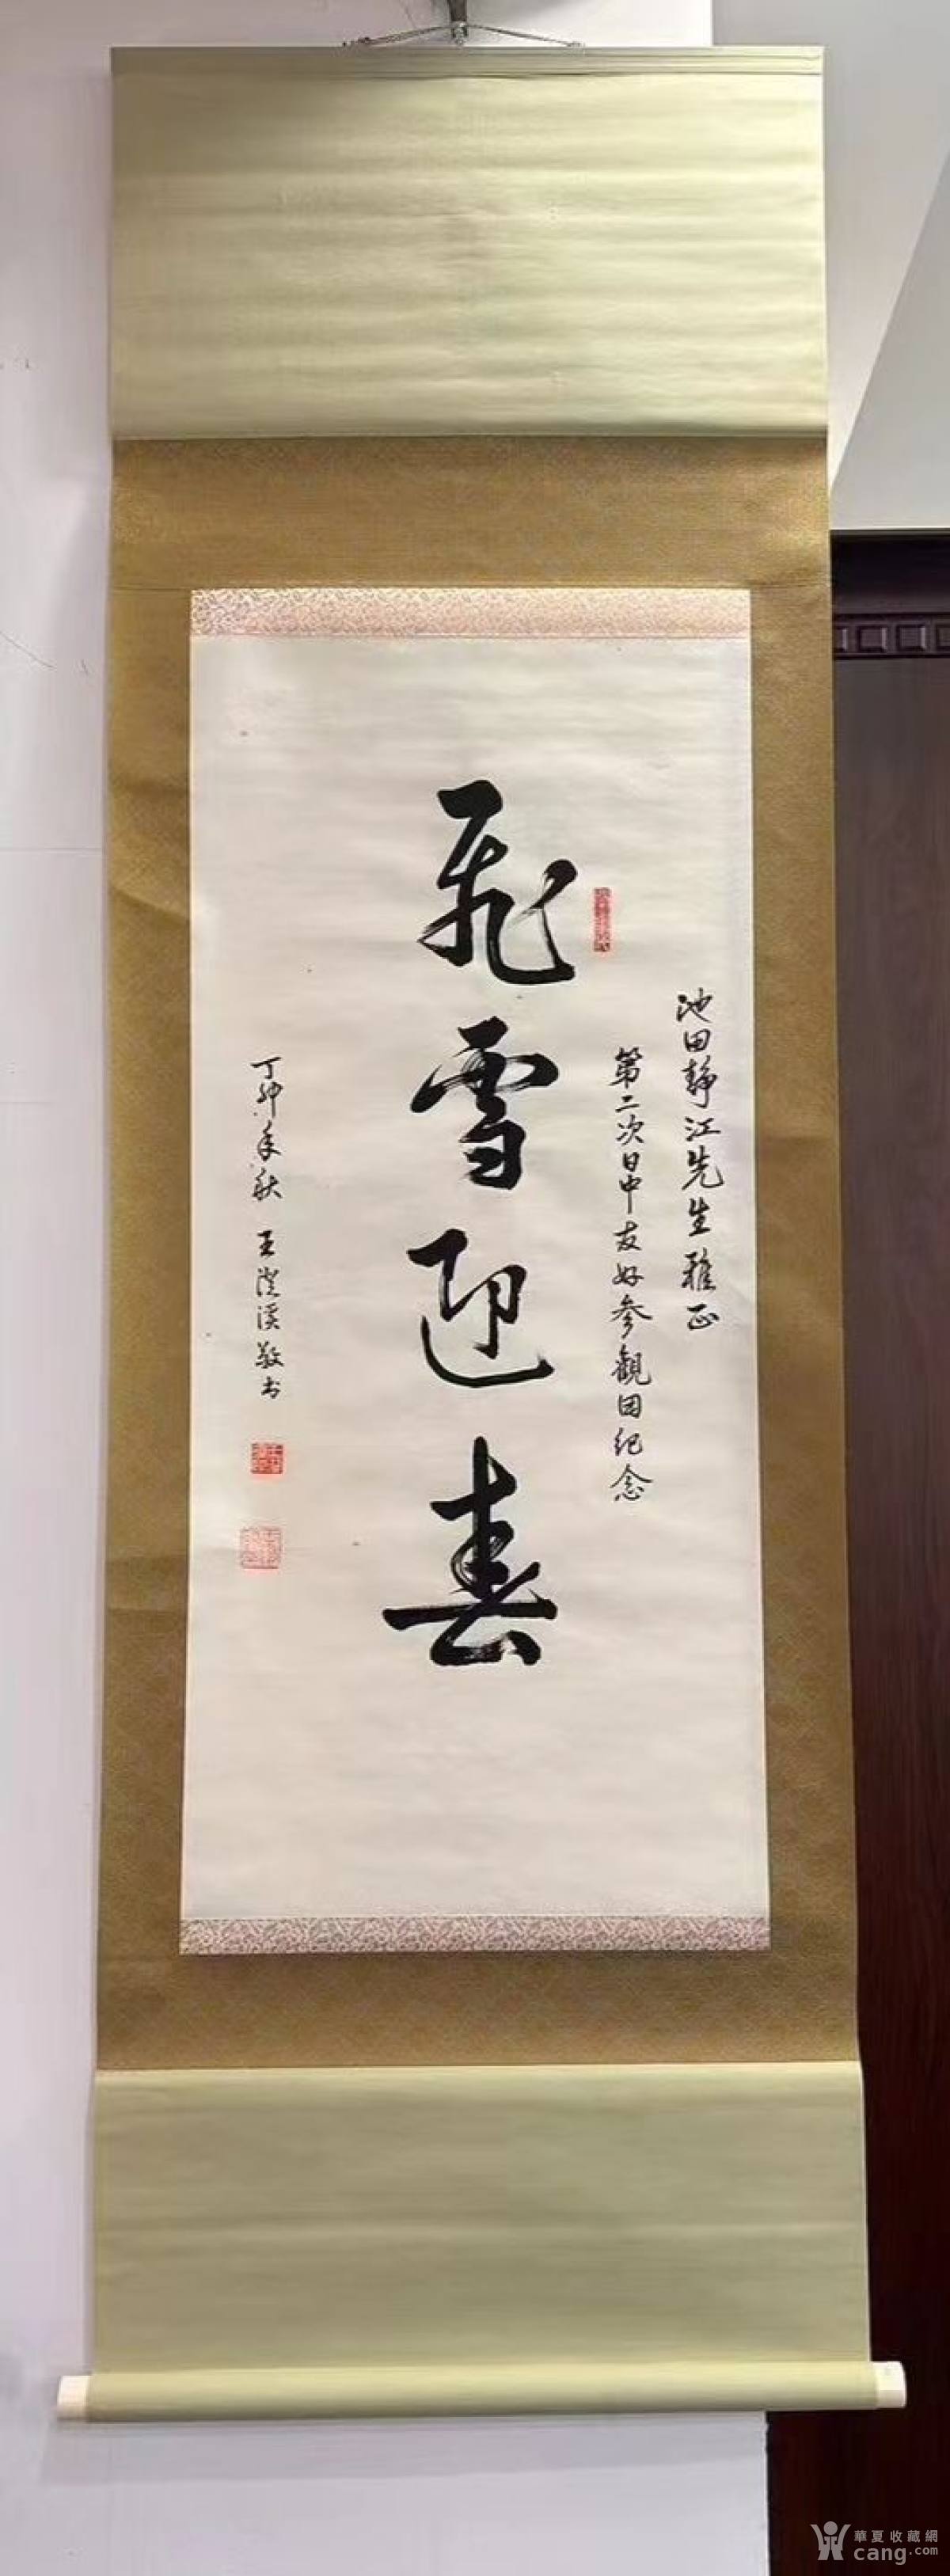 池田靜江先生雅正
第二次日中友好参觀团纪念
飛雪迎春
丁卯年秋 王澄溪敬书
華夏收藏網
cang.com